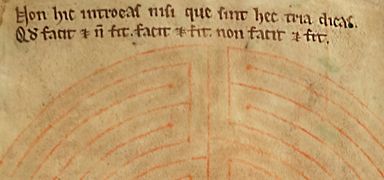 Non hic introeas nisi que sint hec tria dicas.
Qd facit & n̄ fit. facit & fit. non facit & fit.